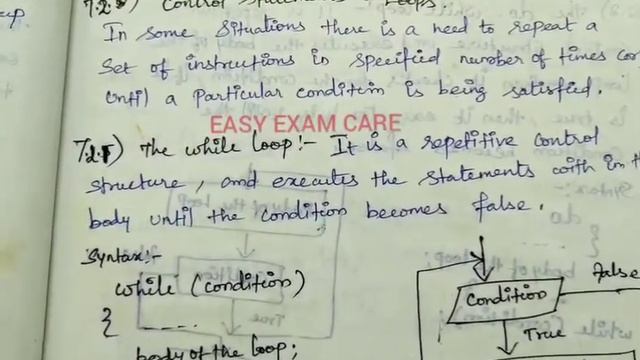 7.2.
Control
Loops:
In some situations there is a need to repeat a
set of instructions in specified number of times (or
until a particular condition is being satisfied.
EASY EXAM CARE
The while loop:- It is a repetitive control
structure, and executes the statements with in th
body until the condition becomes false.
Syntax:-
while (condition)
{ .....
body of the loop;
condition
false
True